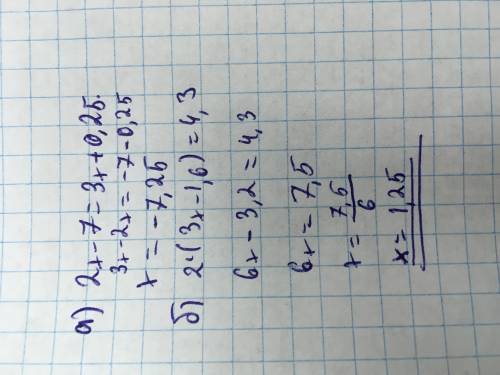 а) 2x - 7 = 3x + 0,25.
3x - 2x = -7 - 0,25
x = -7,25
б) 2·(3x - 1,6) = 4,3
6x - 3,2 = 4,3
6x = 7,5
x = 7,5/6
x = 1,25